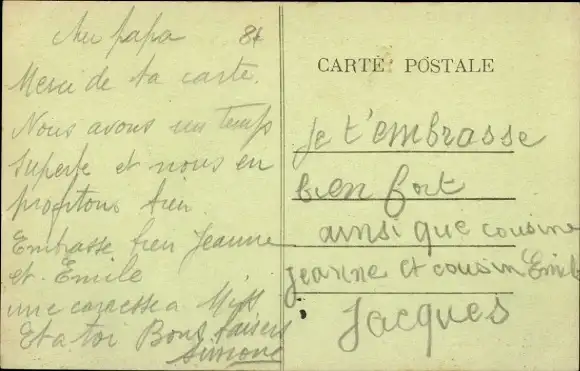 Mon papa 84
Merci de ta carte.
Nous avons un temps
superbe et nous en
profitons bien
Embrasse bien Jeanne
et Emile
une caresse a Miss
Et a toi Bons baisers
Simone
CARTE POSTALE
je t'embrasse
bien fort
ainsi que cousine
jeanne et cousin Emile
Jacques